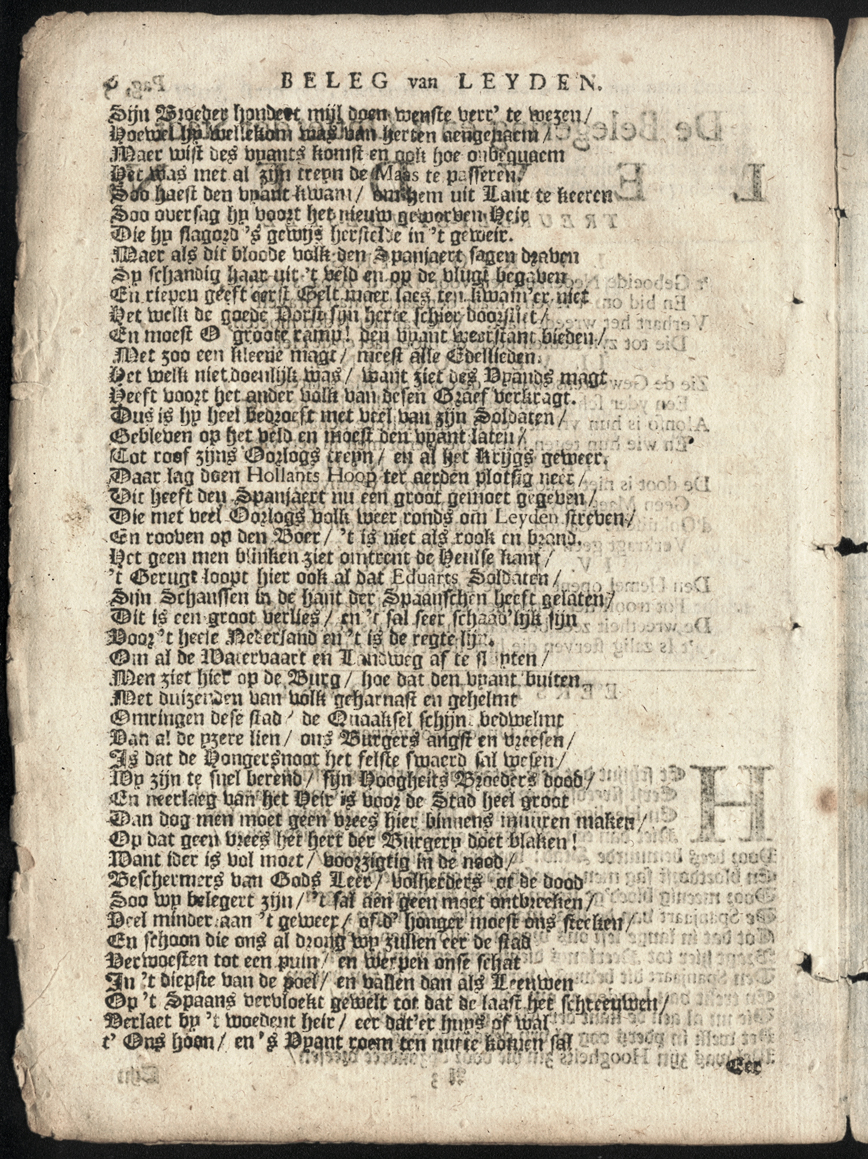 BELEG van LEYDEN.
Sijn Broeder hondert mijl doen wenste verr' te wezen/
Hoewel hy wellekom was van herten aengenaem/
Maer wist des vyants komst en ook hoe onbequaem
Het was met al zijn treyn de Maas te passeren.
Soo haest den vyant kwam/ om hem uit Lant te keeren
Soo oversag hy voort het nieuw geworven Heir
Die hy slagord 's gewijs herstelde in 't geweir.
Maer als dit bloode volk den Spanjaert sagen draven
Sy schandig haar uit 't veld en op de vlugt begaven
En riepen geeft eerst Gelt maer laes ten kwam'er niet
Het welk de goede Vorst sijn herte schier doorstiet/
En moest O groote ramp! den vyant weerstant bieden/
Met zoo een kleene magt/ meest alle Edellieden.
Het welk niet doenlijk was/ want ziet des Vyands magt
Heeft voort het ander volk van desen Graef verkragt.
Dus is hy heel bedroeft met veel van zijn Soldaten/
Gebleven op het veld en moest den vyant laten/
Tot roof zijns Oorlogs treyn/ en al het Krijgs geweer.
Daar lag doen Hollants Hoop ter aerden plotsig neer/
Dit heeft den Spanjaert nu een groot gemoet gegeven/
Die met veel Oorlogs volk weer ronds om Leyden streven/
En rooven op den Boer/ 't is niet als rook en brand.
Het geen men blinken ziet omtrent de Heulse kant/
't Gerugt loopt hier ook al dat Eduarts Soldaten/
Sijn Schanssen in de hant der Spaanschen heeft gelaten/
Dit is een groot verlies/ en 't sal seer schaad'lijk sijn
Voor 't heele Nederland en 't is de regte lijn.
Om al de Watervaart en Landweg af te sluyten/
Men ziet hier op de Burg/ hoe dat den vyant buiten
Met duizenden van volk geharnast en gehelmt
Omringen dese stad/ de Quaaksel schijnt bedwelmt
Dan al de yzere lien/ ons Burgers angst en vreesen/
Is dat de Hongersnoot het felste swaerd sal wesen/
Wy zijn te snel berend/ sijn Hoogheits Broeders dood/
En neerlaeg van het Heir is voor de Stad heel groot
Dan dog men moet geen vrees hier binnens muuren maken/
Op dat geen vrees het hert der Burgery doet blaken!
Want ider is vol moet/ voorzigtig in de nood/
Beschermers van Gods Leer/ volherders tot de dood
Soo wy belegert zijn/ 't sal aen geen moet ontbreeken/
Veel minder aan 't geweer/ of d' honger moest ons steeken/
En schoon die ons al drong wy zullen eer de stad
Verwoesten tot een puin/ en werpen onse schat
In 't diepste van de poel/ en vallen dan als Leeuwen
Op 't Spaans vervloekt gewelt tot dat de laast het schreeuwen/
Verlaet by 't woedent heir/ eer dat'er huys of wal
t' Ons hoon/ en 's Vyant roem ten nutte komen sal
Eer